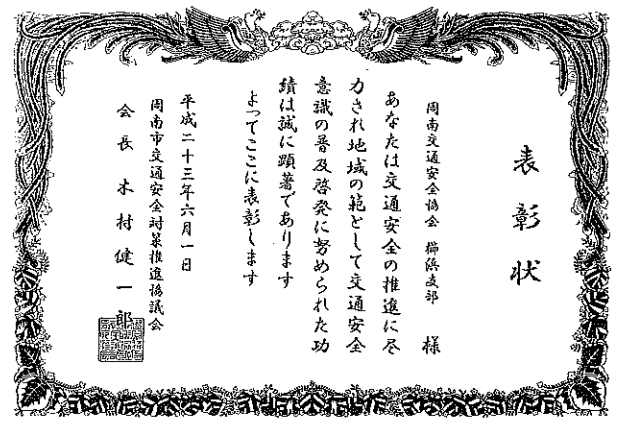 表彰状
周南交通安全協会 櫛浜支部 様
あなたは交通安全の推進に尽
力され地域の範として交通安全
意識の普及啓発に努められた功
績は誠に顕著であります
よってここに表彰します
平成二十三年六月一日
周南市交通安全対策推進協議会
会長 木村健一郎